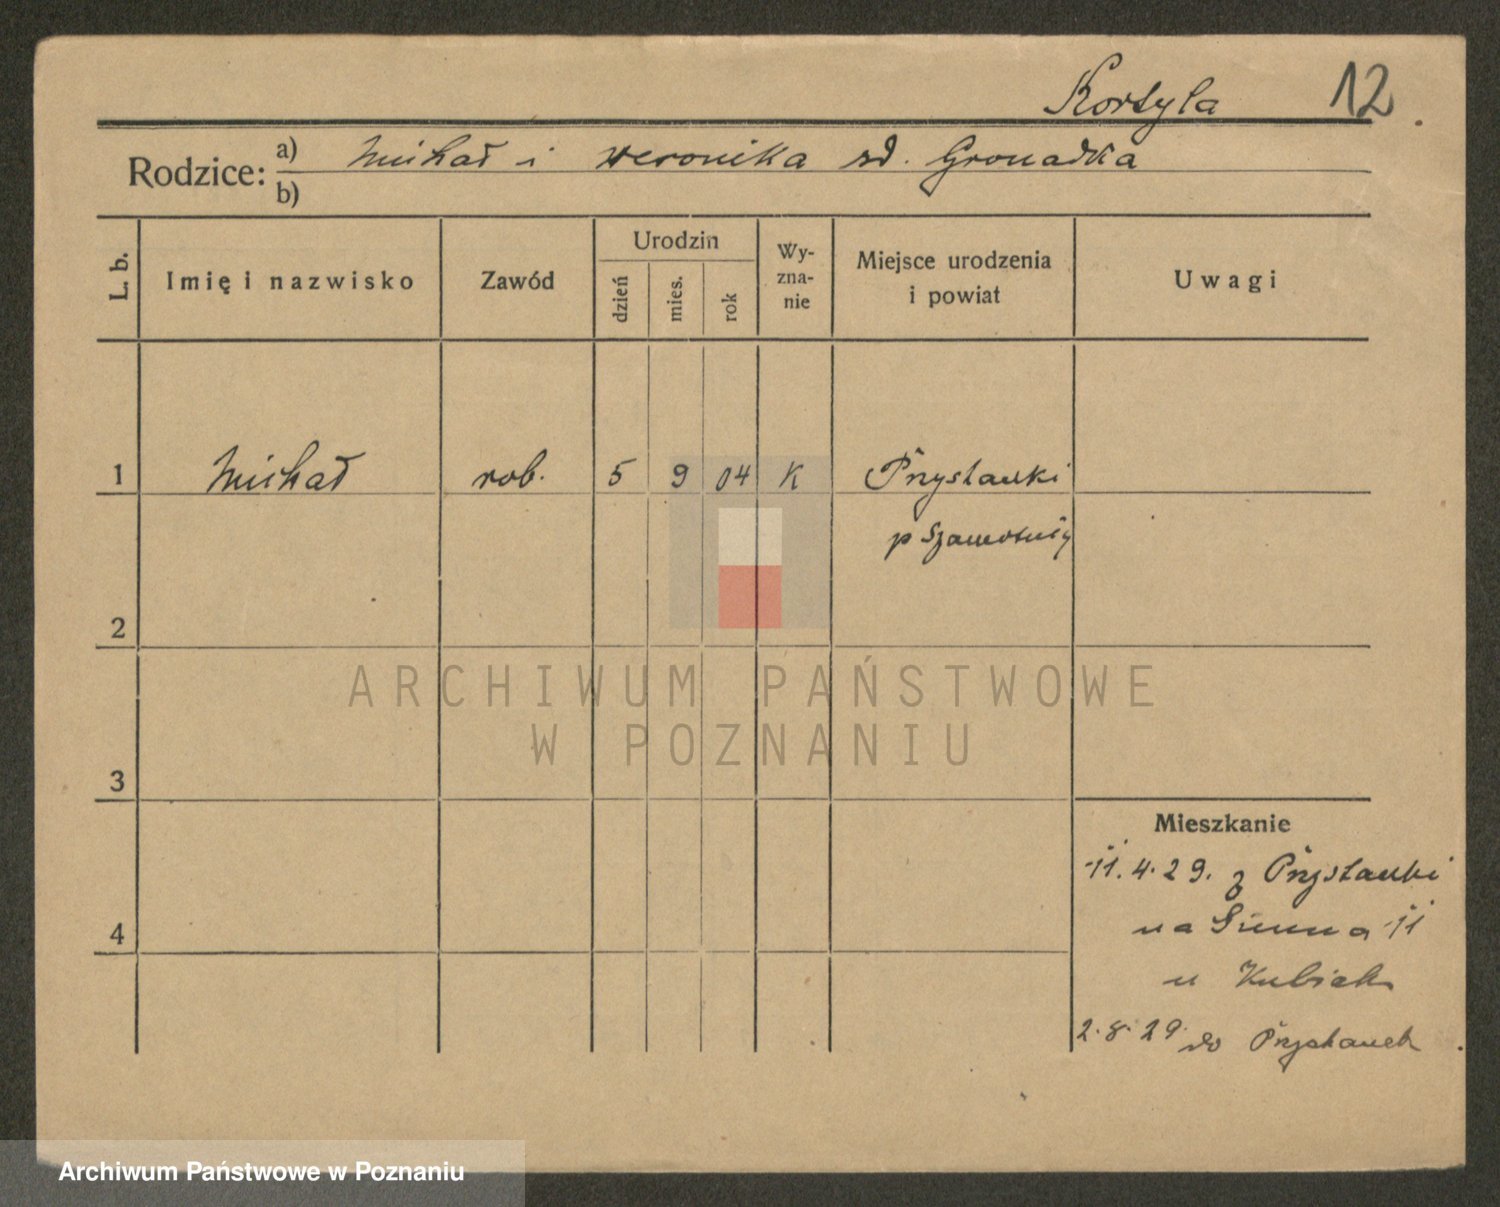 Kortyla 12
Rodzice: a) Michał i Weronika zd. Gromadka
b)
L. b. Imię i nazwisko Zawód Urodzin dzień mies. rok Wy-zna-nie Miejsce urodzenia i powiat Uwagi
1 Michał rob. 5 9 04 K Przystanki
p Szamotuły
2
ARCHIWUM PAŃSTWOWE
W POZNANIU
3
Mieszkanie
11.4.29. z Przystanki
na Zimna 11
4
u Kubiak
2.8.29. do Przystanek
Archiwum Państwowe w Poznaniu